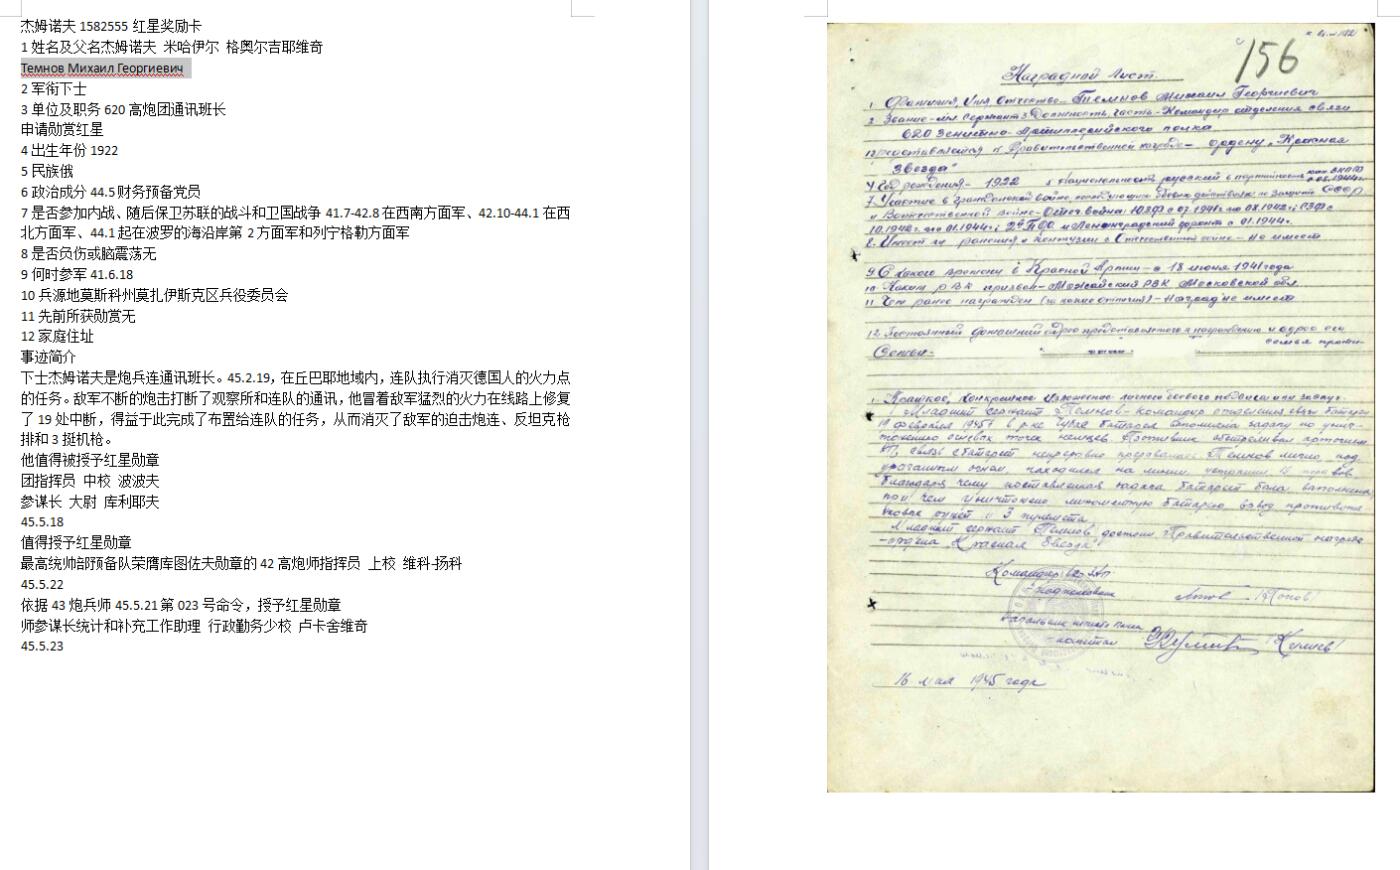 杰姆诺夫 1582555 红星奖励卡
1 姓名及父名杰姆诺夫 米哈伊尔 格奥尔吉耶维奇
Темнов Михаил Георгиевич
2 军衔下士
3 单位及职务 620 高炮团通讯班长
申请勋赏红星
4 出生年份 1922
5 民族俄
6 政治成分 44.5 财务预备党员
7 是否参加内战、随后保卫苏联的战斗和卫国战争 41.7-42.8 在西南方面军、42.10-44.1 在西
北方面军、44.1 起在波罗的海沿岸第 2 方面军和列宁格勒方面军
8 是否负伤或脑震荡无
9 何时参军 41.6.18
10 兵源地莫斯科州莫扎伊斯克区兵役委员会
11 先前所获勋赏无
12 家庭住址
事迹简介
下士杰姆诺夫是炮兵连通讯班长。45.2.19，在丘巴耶地域内，连队执行消灭德国人的火力点
的任务。敌军不断的炮击打断了观察所和连队的通讯，他冒着敌军猛烈的火力在线路上修复
了 19 处中断，得益于此完成了布置给连队的任务，从而消灭了敌军的迫击炮连、反坦克枪
排和 3 挺机枪。
他值得被授予红星勋章
团指挥员 中校 波波夫
参谋长 大尉 库利耶夫
45.5.18
值得授予红星勋章
最高统帅部预备队荣膺库图佐夫勋章的 42 高炮师指挥员 上校 维科-扬科
45.5.22
依据 43 炮兵师 45.5.21 第 023 号命令，授予红星勋章
师参谋长统计和补充工作助理 行政勤务少校 卢卡舍维奇
45.5.23
156
Наградной Лист.
1. Фамилия, Имя, Отчество- Темнов Михаил Георгиевич
2 Звание-мл. Сержант 3 Должность, часть- Командир отделения связи
620 Зенитно-Артиллерийского полка
представляется к Правительственной награде- ордену „Красная
Звезда"
4 Год рождения- 1922 5 Национальность русский 6 партийность
7. Участие в Гражданской войне, последующие боевые действия по защите СССР
и Отечественной войне-
9. С какого времени в Красной Армии- с 18 июня 1941 года
10. Каким РВК призван- Можайский РВК Московской обл.
11 Чем ранее награжден (за какие отличия)- Наград не имеет
12. Постоянный домашний адрес представляемого к награждению и адрес его
Семьи-
1. Краткое, конкретное изложение личного боевого подвига или заслуг.
Младший сержант Темнов- командир отделения связи батареи
19 февраля 1945г в р-не батарея выполняла задачу по унич-
тожению огневых точек немцев.
благодаря чему поставленная задача батарее была выполнена,
при чем уничтожено минометную батарею, взвод противотан
ковых ружей и 3 пулемета
Младший сержант Темнов достоин Правительственной награды
-ордена „Красная Звезда"
Командир 620 ЗАП
-подполковник /Попов/
Начальник штаба полка
-капитан /Кулиев/
16 мая 1945 года